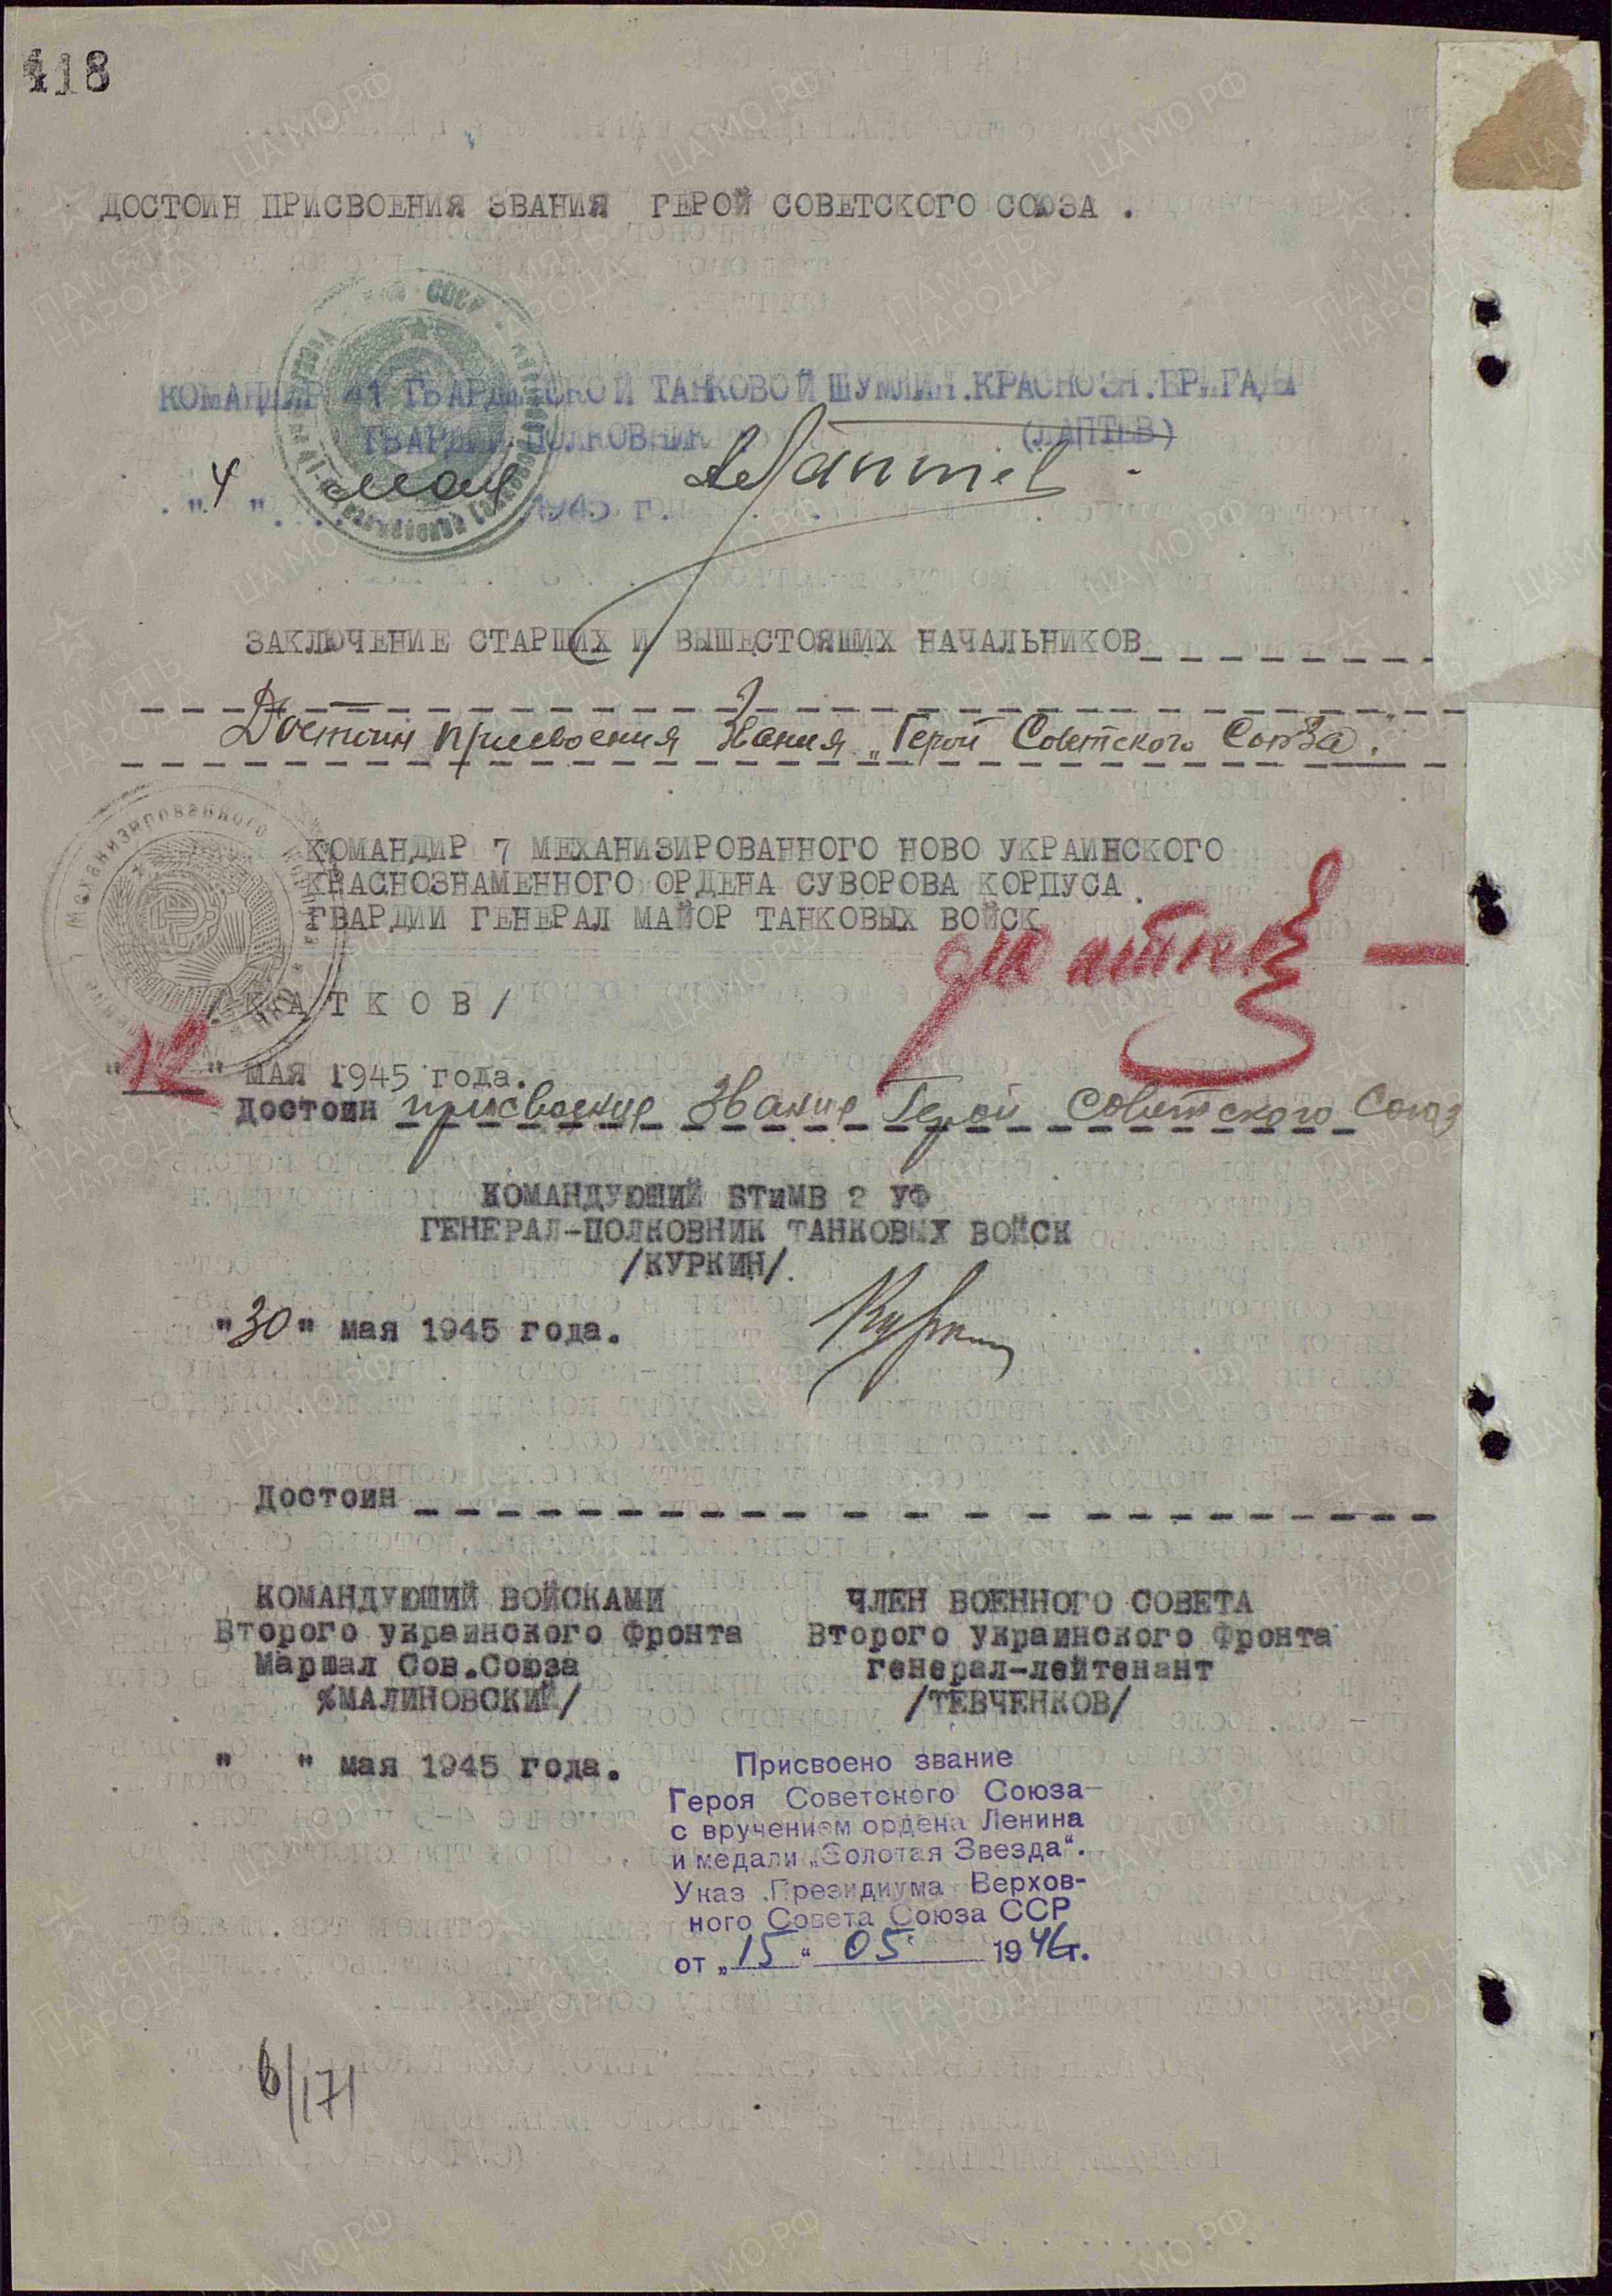 118
ДОСТОИН ПРИСВОЕНИЯ ЗВАНИЯ ГЕРОЙ СОВЕТСКОГО СОЮЗА .
КОМАНДИР 41 ГВАРДЕЙСКОЙ ТАНКОВОЙ ШУМЛИН.КРАСНОЗН.БРИГАДЫ
ГВАРДИИ ПОЛКОВНИК (ЛАПТЕВ)
"4" мая 1945 г.
ЗАКЛЮЧЕНИЕ СТАРШИХ И ВЫШЕСТОЯЩИХ НАЧАЛЬНИКОВ
Достоин присвоения звания „Герой Советского Союза".
КОМАНДИР 7 МЕХАНИЗИРОВАННОГО НОВО УКРАИНСКОГО
КРАСНОЗНАМЕННОГО ОРДЕНА СУВОРОВА КОРПУСА
ГВАРДИИ ГЕНЕРАЛ МАЙОР ТАНКОВЫХ ВОЙСК
/ К А Т К О В /
"12" МАЯ 1945 года.
Достоин присвоение звание Герой Советского Союз
КОМАНДУЮЩИЙ БТиМВ 2 УФ
ГЕНЕРАЛ-ПОЛКОВНИК ТАНКОВЫХ ВОЙСК
/КУРКИН/.
"30" мая 1945 года.
Достоин
КОМАНДУЮЩИЙ ВОЙСКАМИ ЧЛЕН ВОЕННОГО СОВЕТА
Второго украинского Фронта Второго украинского Фронта
Маршал Сов.Союза генерал-лейтенант
/МАЛИНОВСКИЙ/ /ТЕВЧЕНКОВ/
" " мая 1945 года.
Присвоено звание
Героя Советского Союза
с вручением ордена Ленина
и медали „Золотая Звезда".
Указ Президиума Верхов-
ного Совета Союза ССР
от „15" 05 1946г.
6/171